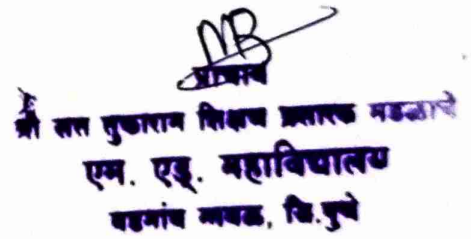 प्राचार्य
श्री संत तुकाराम शिक्षण प्रसारक मंडळाचे
एम. एड्. महाविद्यालय
वडगांव मावळ, जि.पुणे